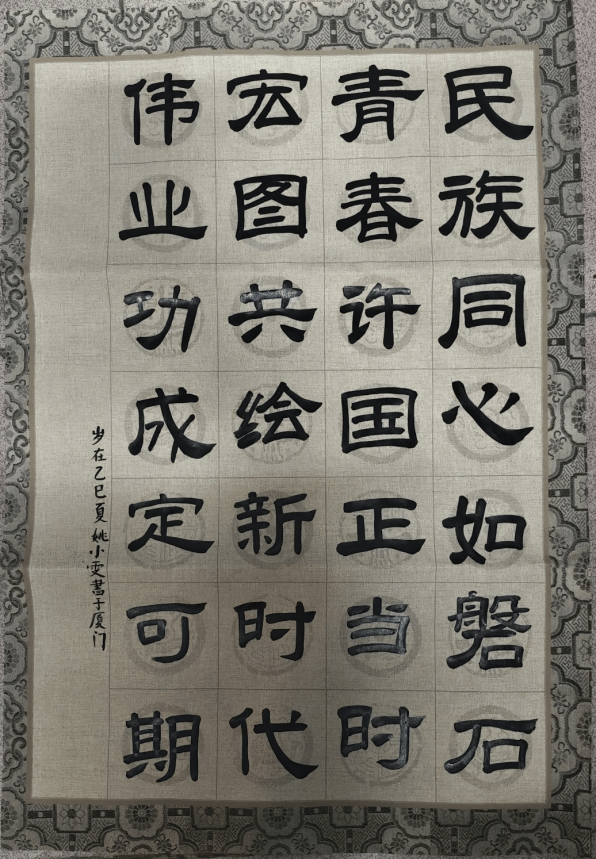 民族同心如磐石
青春许国正当时
宏图共绘新时代
伟业功成定可期
岁在乙巳夏姚小雯書于厦门